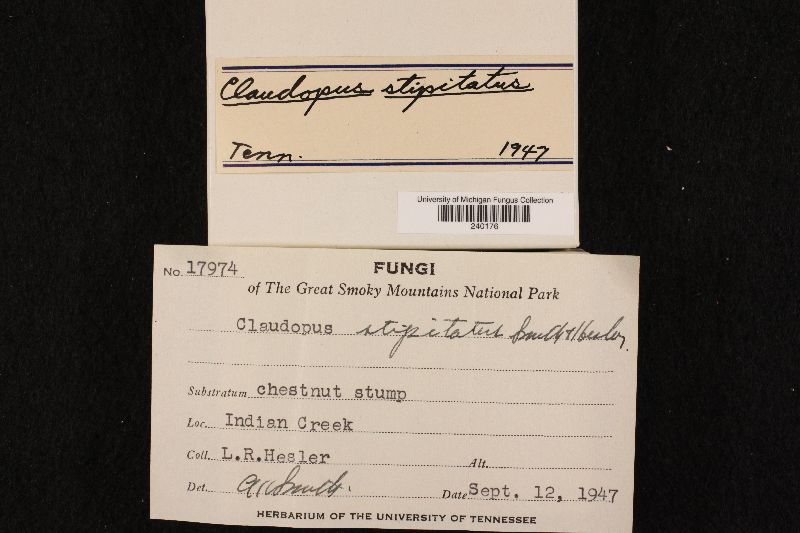 Claudopus stipitatus
Tenn. 1947
University of Michigan Fungus Collection
240176
No. 17974 FUNGI
of The Great Smoky Mountains National Park
Claudopus stipitatus Smith & Hesler
Substratum chestnut stump
Loc. Indian Creek
Coll. L.R.Hesler Alt.
Det. AHSmith. Date Sept. 12, 1947
HERBARIUM OF THE UNIVERSITY OF TENNESSEE